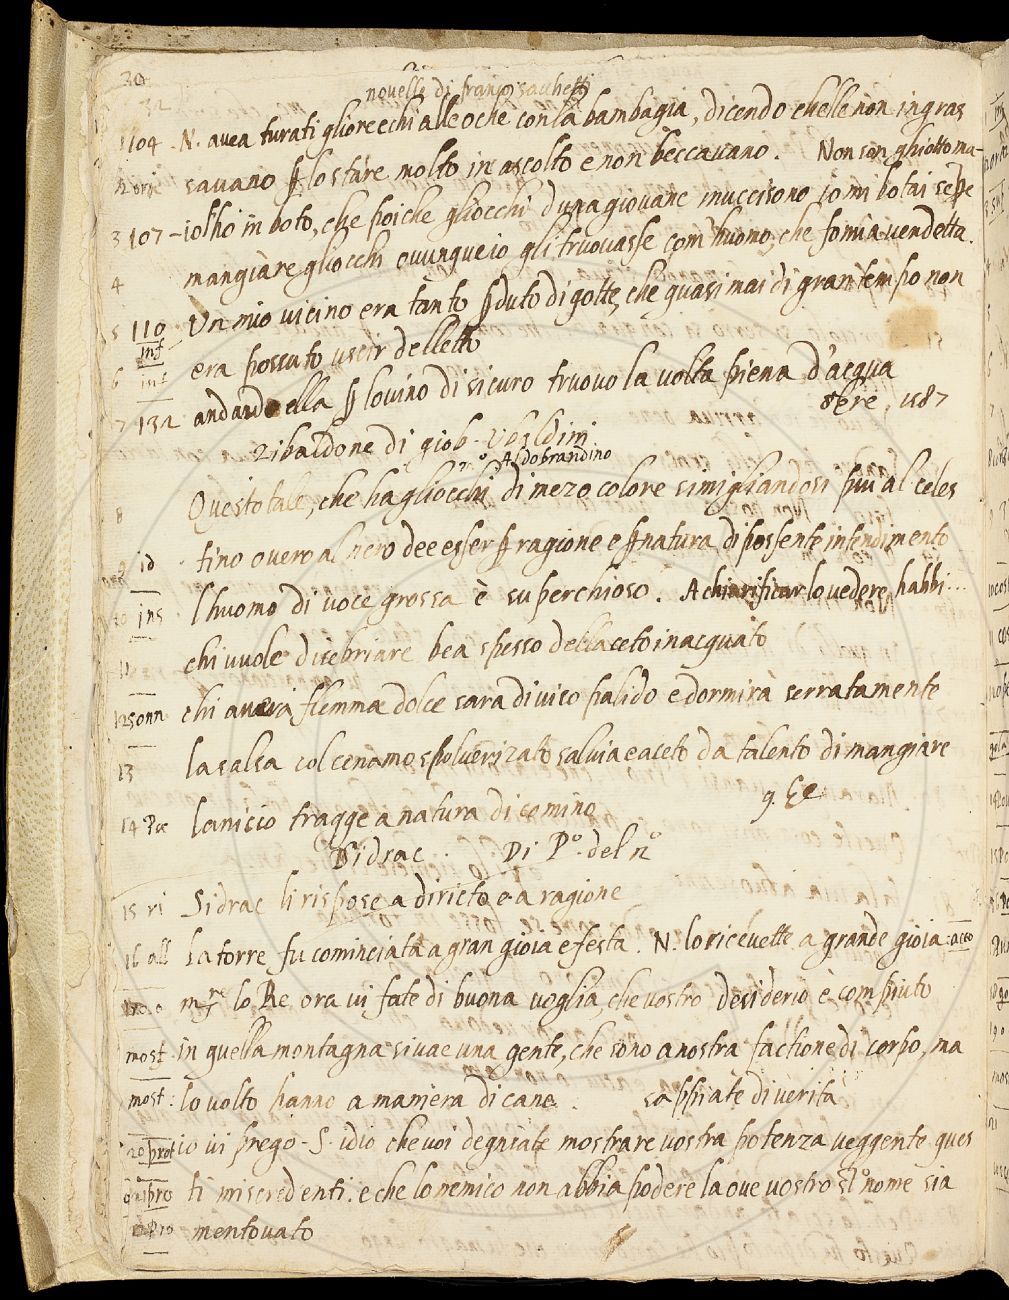 30
32
novelle di franco sacchetti
1104 - N. avea turati gliorecchi alle oche con la bambagia, dicendo chelle non ingras
savano p lo stare molto in ascolto e non beccavano. Non son ghiotto ma
3 107 - iolho in boto, che poiche gliocchi duna giovane muccisono io mi botai sepe
4 mangiare gliocchi ovunque io gli truovasse com huomo, che fo mia vendetta.
5 110 Un mio vicino era tanto pduto di gotte, che quasi mai di gran tempo non
inf
6 inf era possuto uscir delletto
7 132 andando ella p lo vino di sicuro truovo la volta piena d'acqua
1587
Zibaldone di giob. Ubaldini
Aldobrandino
8 Questo tale, che ha gliocchi di mezo colore simigliandosi piu al celes
9 id tino overo al nero dee esser p ragione e p natura di possente intendimento
10 ins lhuomo di voce grossa è superchioso. A chiarificar lo vedere habbi...
11 chi vuole disebriare bea spesso dellaceto inacquato
12 sonn chi avera flemma dolce sara di viso palido e dormirà serratamente
13 la salsa col cenamo spolverizato salvia e aceto da talento di mangiare
14 lanicio tragge a natura di comino
Sidrac Di Po. del no
15 ri Sidrac li rispose a diricto e a ragione
16 all La torre fu cominciata a gran gioia e festa. N. lo ricevette a grande gioia
lo Re ora vi fate di buona voglia, che vostro desiderio è compiuto
most in quella montagna si vae una gente, che sono a nostra factione di corpo, ma
most: lo volto hanno a maniera di cane. sappiate di verita
20 prot io vi prego - S. idio che voi degniate mostrare vostra potenza veggente ques
pro ti miscredenti. e che lo nemico non abbia podere la ove vostro sto nome sia
mentovato